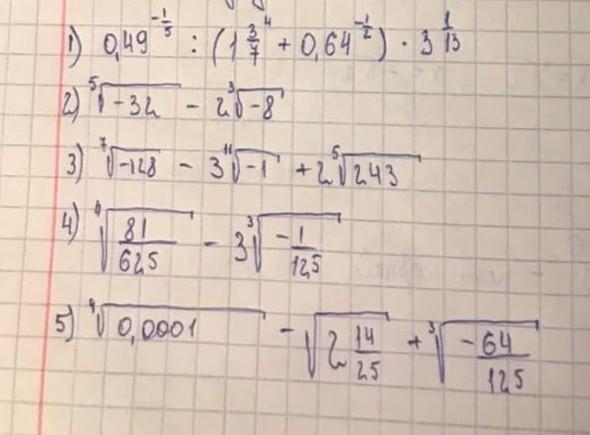 1) 0,49^(-1/5) : (1 3/7^4 + 0,64^(-1/2)) · 3^(1/13)
2) ⁵√-32 - 2 ³√-8
3) ⁷√-128 - 3 ¹¹√-1 + 2 ⁵√243
4) ⁴√(81/625) - 3 ³√(-1/125)
5) ⁴√0,0001 - √(2 14/25) + ³√(-64/125)